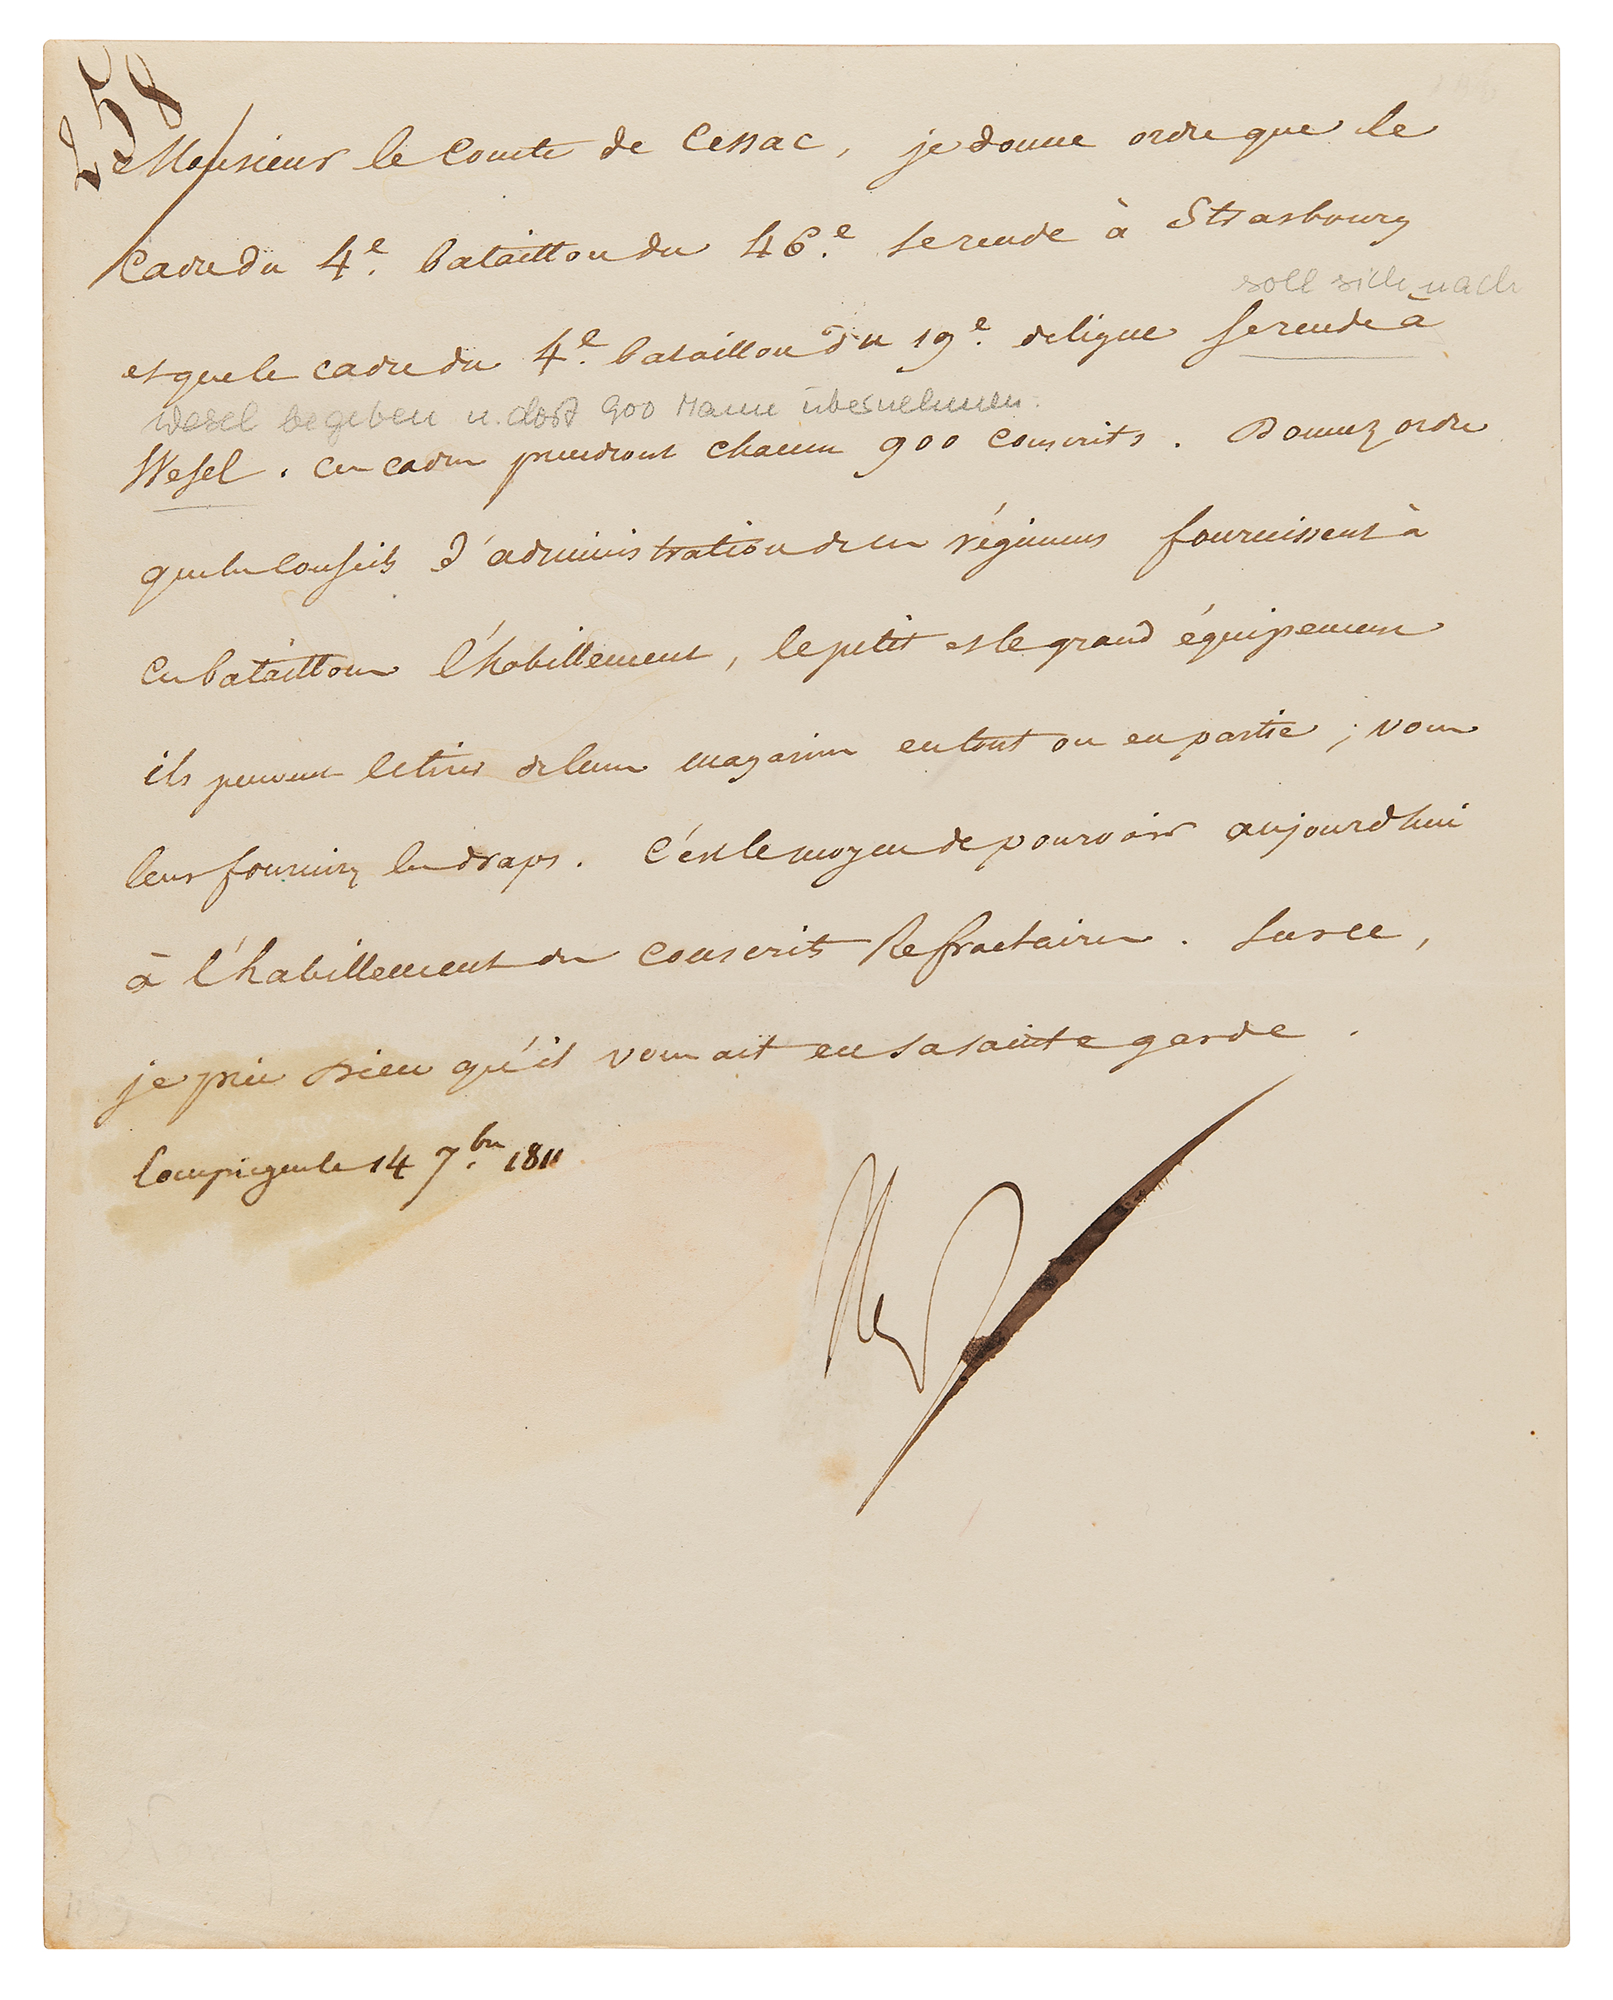 258
Monsieur le Comte de Cessac, je donne ordre que le
Cadre du 4e. bataillon du 46.e se rende à Strasbourg
soll sich nach
et que le cadre du 4e. bataillon du 19e. de ligne se rende à
Wesel begeben u. dort 900 Mann übernehmen.
Wesel. Ces cadres prendront chacun 900 conscrits. Donnez ordre
que les Conseils d'administration de ces régimens fournissent à
ces bataillons l'habillement, le petit et le grand équipement
ils peuvent le tirer de leurs magasins en tout ou en partie; vous
leur fournirez les draps. C'est le moyen de pourvoir aujourd'hui
à l'habillement des conscrits Refractaires. Sur ce,
je prie Dieu qu'il vous ait en sa sainte garde.
Compiegne le 14 7.bre 1811
Nap